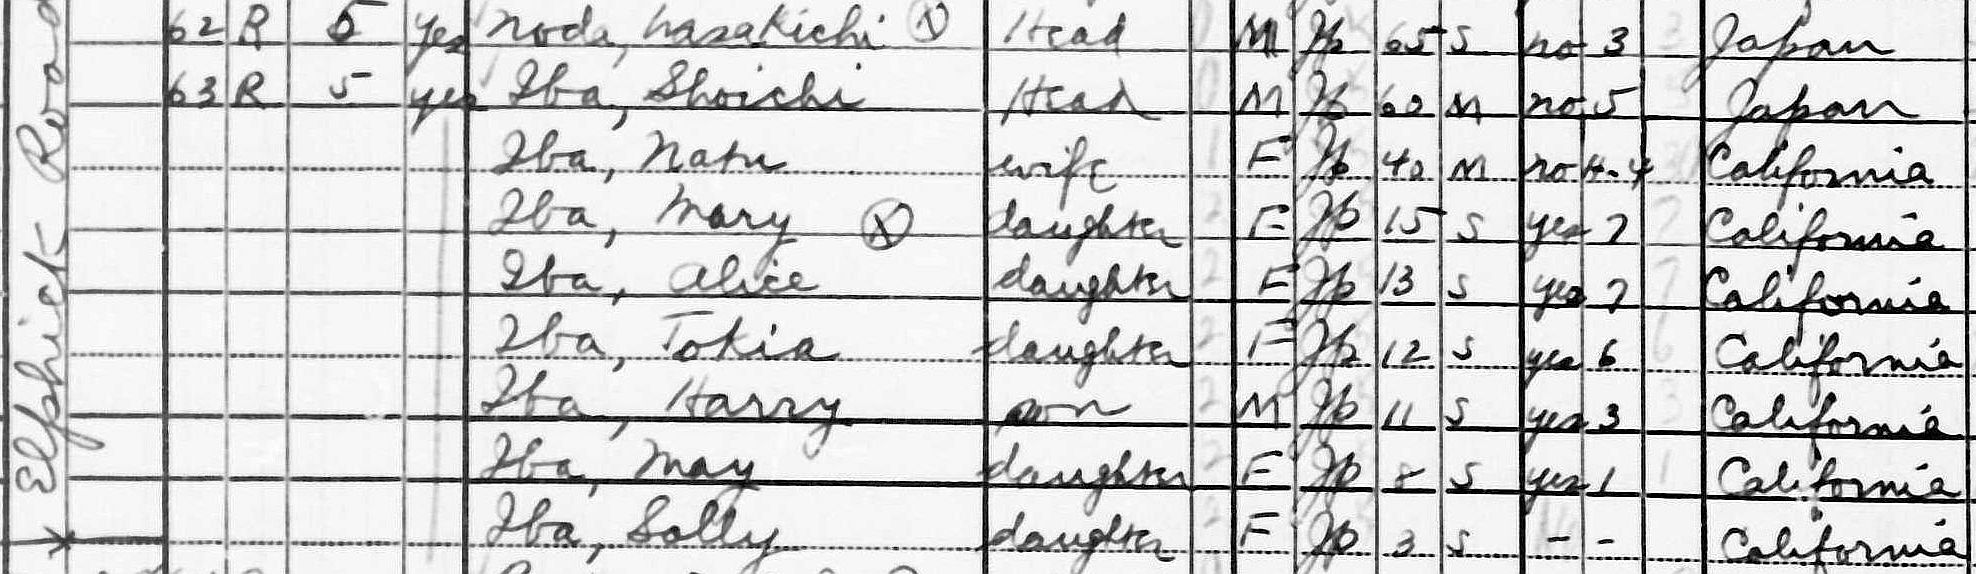 Elphick Road
62 R 5 yes Noda, Masakichi (X) Head M Jp 65 S no 3 Japan
63 R 5 yes Iba, Shoichi Head M Jp 60 M no 5 Japan
Iba, Natu wife F Jp 40 M no H-4 California
Iba, Mary (X) daughter F Jp 15 S yes 7 California
Iba, Alice daughter F Jp 13 S yes 7 California
Iba, Tokia daughter F Jp 12 S yes 6 California
Iba, Harry son M Jp 11 S yes 3 California
Iba, May daughter F Jp 8 S yes 1 California
Iba, Sally daughter F Jp 3 S - - California